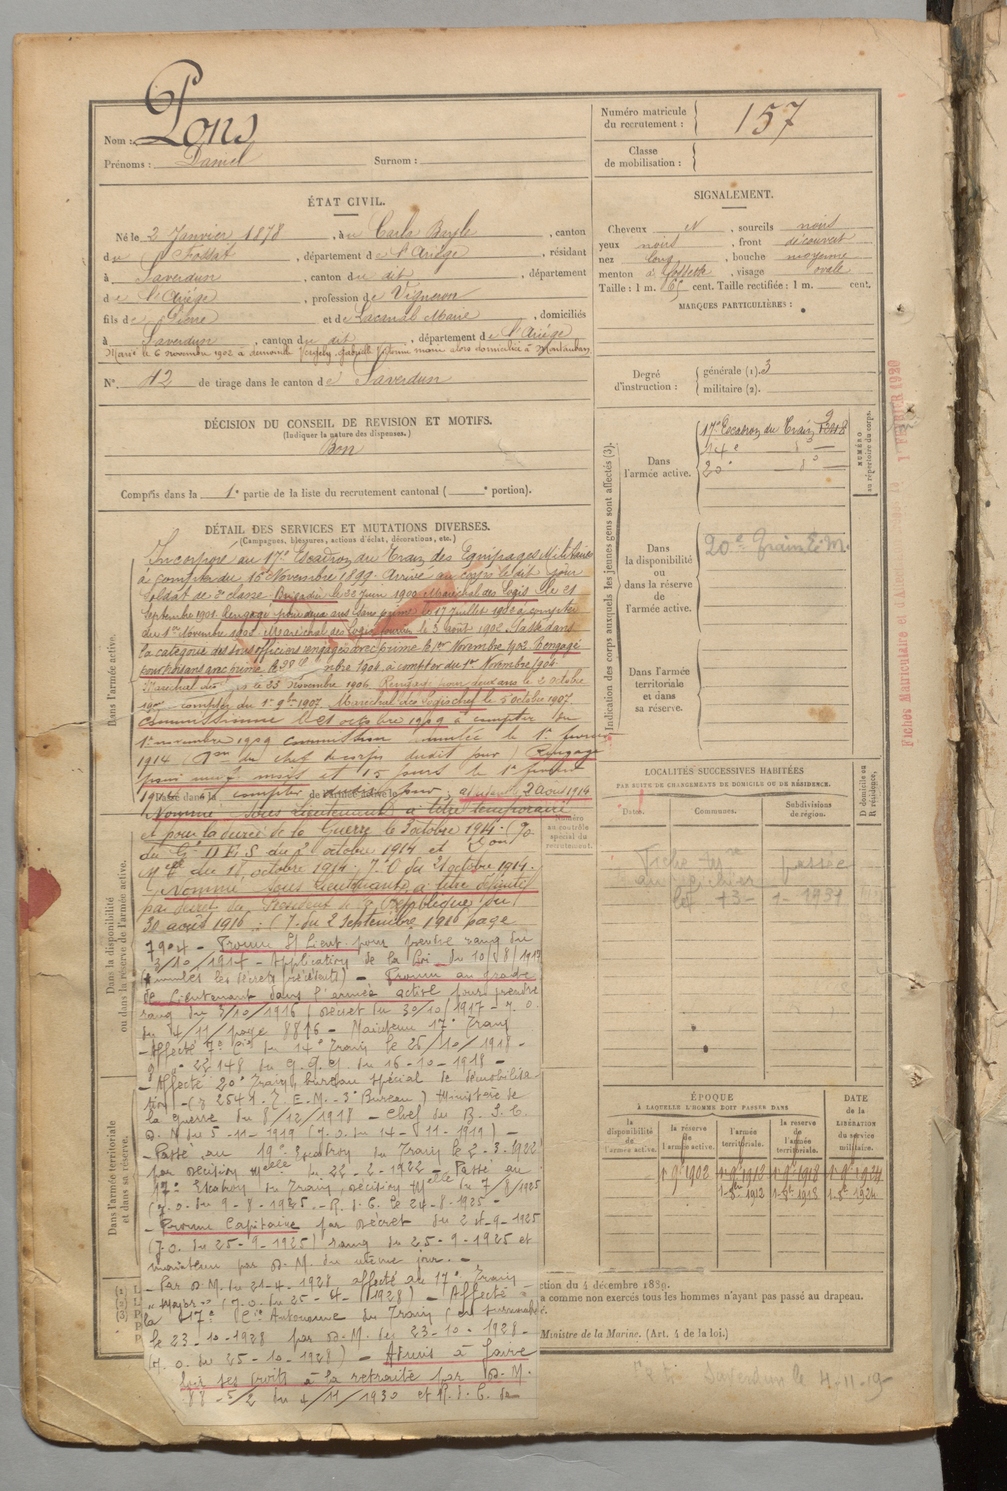 Nom : Pons
Prénoms : Daniel Surnom :
Numéro matricule du recrutement : 157
Classe de mobilisation :
ÉTAT CIVIL.
Né le 2 Janvier 1878, à Carla Bayle, canton
du Fossat, département de l'Ariège, résidant
à Saverdun, canton du dit, département
de l'Ariège, profession de Vigneron
fils de et de Lacanal Marie, domiciliés
à Saverdun, canton du dit, département de l'Ariège
Marié le 6 novembre 1902 à demoiselle alors domiciliée à Montauban
N° 42 de tirage dans le canton de Saverdun
SIGNALEMENT.
Cheveux N, sourcils noirs
yeux noirs, front découvert
nez long, bouche moyenne
menton à fossette, visage ovale
Taille : 1 m. 65 cent. Taille rectifiée : 1 m. cent.
MARQUES PARTICULIÈRES :
Degré d'instruction : générale (1). 3
militaire (2).
DÉCISION DU CONSEIL DE REVISION ET MOTIFS.
(Indiquer la nature des dispenses.)
Bon
Compris dans la 1e partie de la liste du recrutement cantonal ( e portion).
Indication des corps auxquels les jeunes gens sont affectés (3).
Dans l'armée active.
17e Escadron du Train
14e
20e
NUMÉRO au répertoire du corps.
Dans la disponibilité ou dans la réserve de l'armée active.
20e Train E.M.
Dans l'armée territoriale et dans sa réserve.
DÉTAIL DES SERVICES ET MUTATIONS DIVERSES.
(Campagnes, blessures, actions d'éclat, décorations, etc.)
Dans l'armée active.
Incorporé au 17e Escadron du Train des Equipages Militaires
à compter du 16 Novembre 1899. Arrivé au corps le dit jour
soldat de 2e classe. Brigadier le 30 Juin 1900 Maréchal des Logis le 21
Septembre 1901. Rengagé pour deux ans sans prime le 17 Juillet 1902 à compter
du 1er Novembre 1902. Maréchal des Logis fourrier le 3 Août 1902. Passé dans
la catégorie des sous officiers rengagés avec prime le 1er Novembre 1902. Rengagé
pour ans avec prime le 1904, à compter du 1er Novembre 1904.
Maréchal des le 25 novembre 1906. Rengagé pour deux ans le 2 octobre
compter du 1er 9bre 1907. Maréchal des Logis chef le 5 octobre 1907.
Commissionné le 21 octobre 1909 à compter du
1er novembre 1909 commission annulée le 1er février
1914 (don du chef de corps dudit jour) Rengagé
pour neuf mois et 15 jours le 1er février
1914 à compter dudit jour; adjudant 2 août 1914
Nommé sous lieutenant à titre temporaire
et pour la durée de la Guerre le 3 octobre 1914. (
du Gal D.E.S du 2 octobre 1914 et Don
Mlle du 11 octobre 1914, J.O du 21 octobre 1914.
Nommé sous lieutenant à titre définitif
par décret du Président de la République du
30 août 1916. (J. du 2 Septembre 1916 page
7904 - Promu S/Lieut. pour prendre rang du
3/10/1914 - Application de la Loi du 10/8/1917
(annule les décrets précédents) - Promu au grade
de Lieutenant dans l'armée active pour prendre
rang du 3/10/1916 (décret du 30/10/1917 - J.O.
du 4/11/page 8896 - Maintenu 17e Train
- Affecté 7e Cie du 14e Train le 25/10/1918 -
22148 du G.Q.G. du 16-10-1918 -
- Affecté 20e Train, bureau spécial de démobilisa-
tion - ( 2549. E.M. - 3e Bureau) Ministère de
la guerre du 8/12/1918 -
du 5-11-1919 (J.O. du 14-11-1919) -
- Passé au 19e Escadron du Train le 2-3-1922
par décision Mlle du 22-2-1922 - Passé au
17e Escadron du Train, décision Mlle du 7/8/1925
(J.O. du 9-8-1925 - R.d.C. le 24-8-1925 -
- Promu Capitaine par décret du 21-9-1925
(J.O. du 25-9-1925) rang du 25-9-1925 et
maintenu par D.M. du même jour. -
- Par D.M. du 21-4-1928, affecté au 17e Train
"Major" (J.O. du 25-4-1928) - Affecté à
la 417e Cie Autonome du Train (en surnombre)
le 23-10-1928 par D.M. du 23-10-1928 -
(J.O. du 25-10-1928) - Admis à faire
valoir ses droits à la retraite par D.M.
5/2 du 4/11/1930 et R.d.C.
Dans la disponibilité ou dans la réserve de l'armée active.
Dans l'armée territoriale et dans sa réserve.
Numéro au contrôle spécial du recrutement.
LOCALITÉS SUCCESSIVES HABITÉES
PAR SUITE DE CHANGEMENTS DE DOMICILE OU DE RÉSIDENCE.
Dates.
Communes.
Subdivisions de région.
D domicile ou R résidence.
Fiche passée
au fichier
1931
ÉPOQUE
À LAQUELLE L'HOMME DOIT PASSER DANS
la disponibilité de l'armée active.
la réserve de l'armée active.
l'armée territoriale.
la réserve de l'armée territoriale.
DATE de la LIBÉRATION du service militaire.
1er 9bre 1902 1er 9bre 1912 1er 9bre 1918 1er 9bre 1924
1-8bre 1912 1-8bre 1918 1-8bre 1924
ction du 4 décembre 1889.
a comme non exercés tous les hommes n'ayant pas passé au drapeau.
Ministre de la Marine. (Art. 4 de la loi.)
Saverdun le 4-11-19